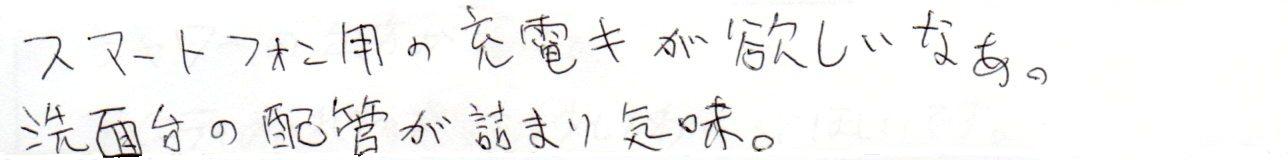 スマートフォン用の充電キが欲しいなぁ。
洗面台の配管が詰まり気味。